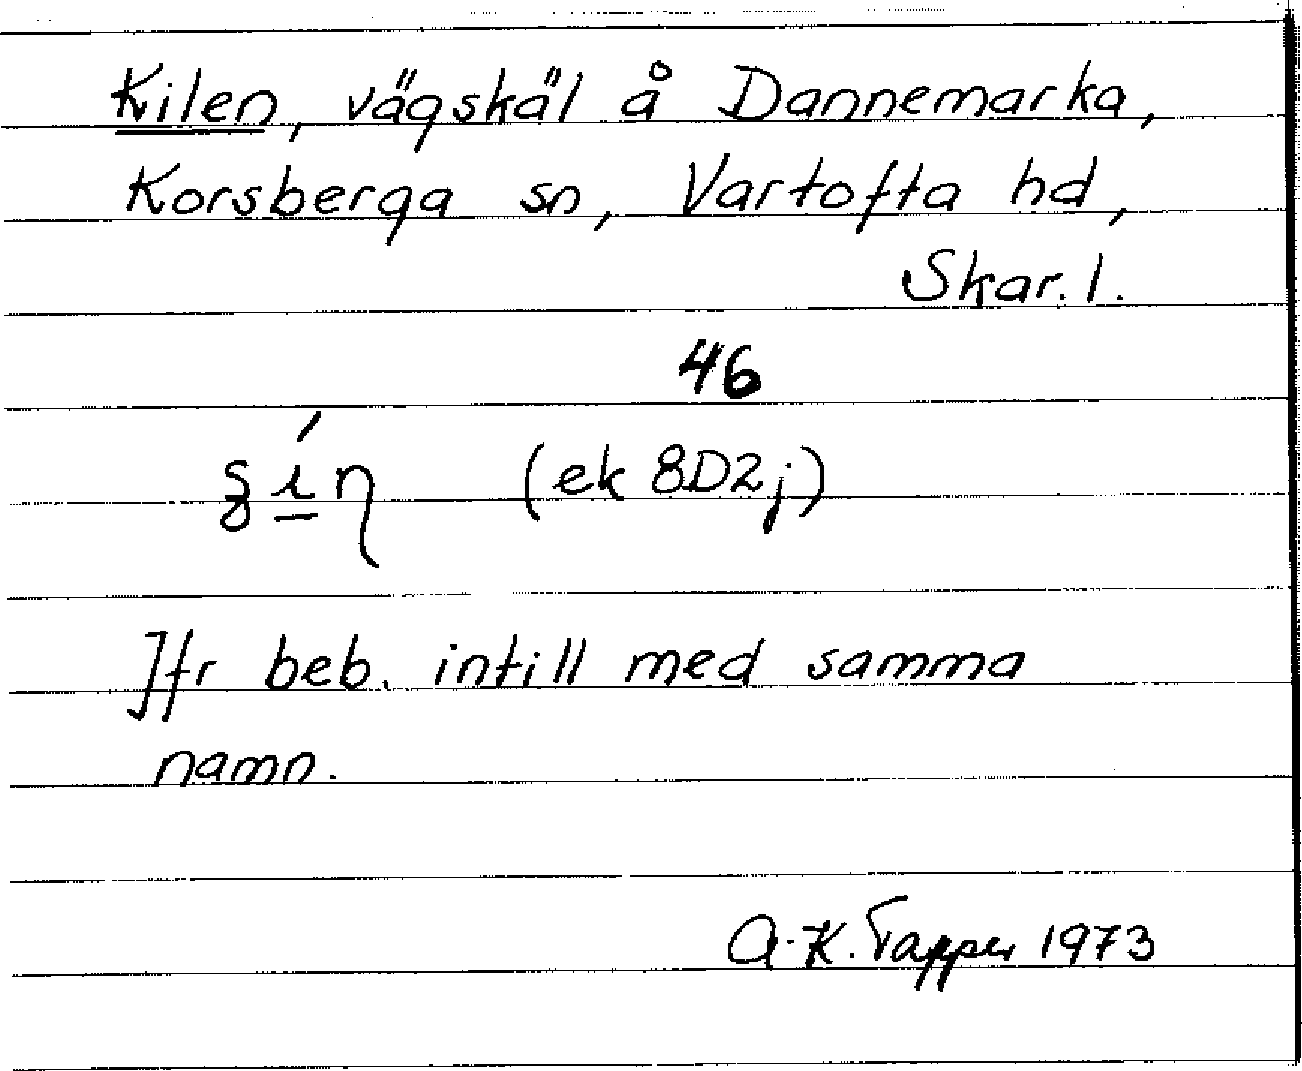 Kilen, vägskäl å Dannemarka,
Korsberga sn, Vartofta hd,
Skar. l.
46
(ek 8D2j)
Jfr beb. intill med samma
namn.
A-K. Tapper 1973